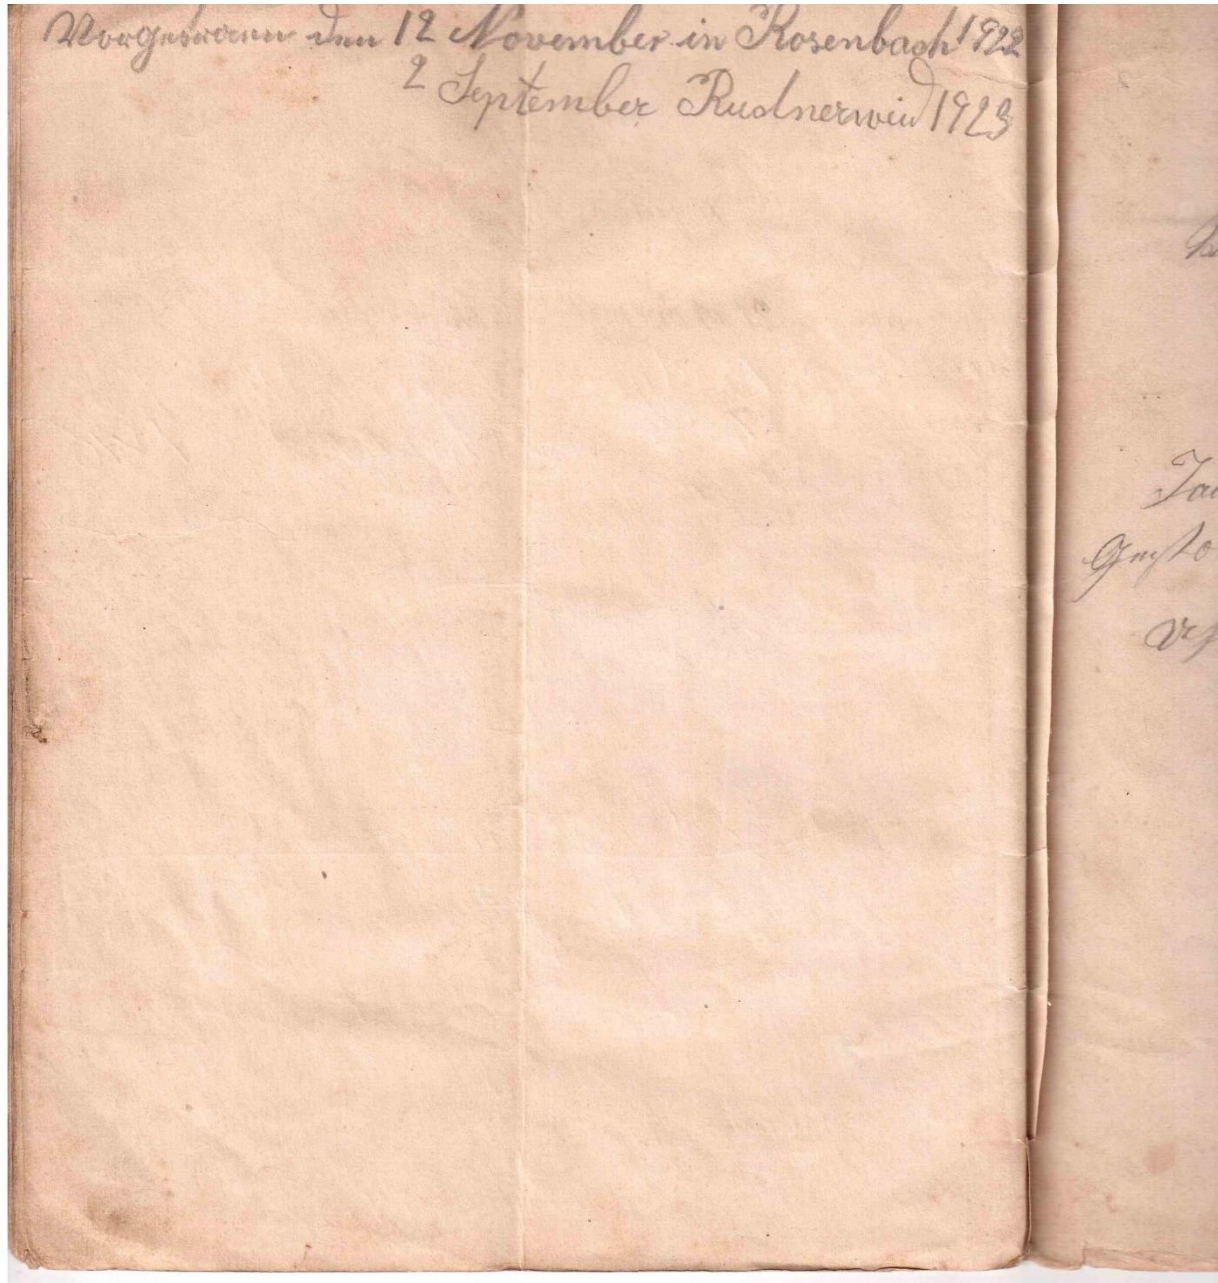 Vorgetragen den 12 November in Rosenbach 1922
2 September Rudnerweid 1923